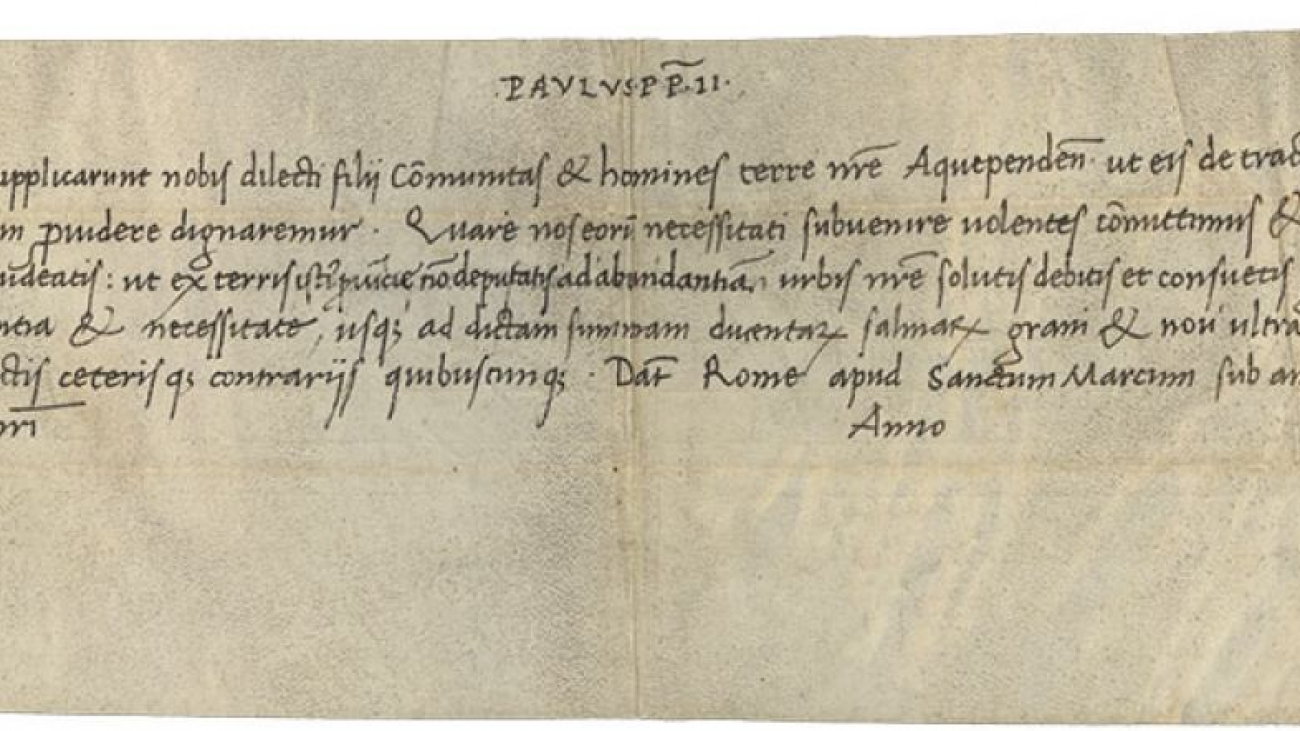 .PAVLVS.P P̄.II.
upplicarunt nobis dilecti filij Cōmunitas & homines terre nr̄e Aquependen̄. ut eis de trac
m ꝓuidere dignaremur. Quare nos eorū necessitati subuenire uolentes cōmittimus &
udeatis: ut ex terris nō deputatis ad abundantiā urbis nr̄e solutis debitis et consuetis
ntia & necessitate, usqꝫ ad dictam summam ducentaꝝ salmaꝝ grani & non ultra
ctis ceterisqꝫ contrarijs quibuscunqꝫ. Dat̄ Rome apud Sanctum Marcum sub an
ori Anno